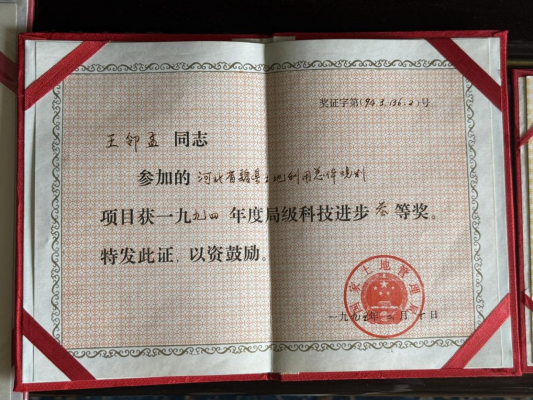 奖证字第(94.3.136.2)号
王邻孟 同志
参加的 河北省魏县土地利用总体规划
项目获一九九四年度局级科技进步叁等奖。
特发此证，以资鼓励。
国家土地管理局
一九九 年 月 日